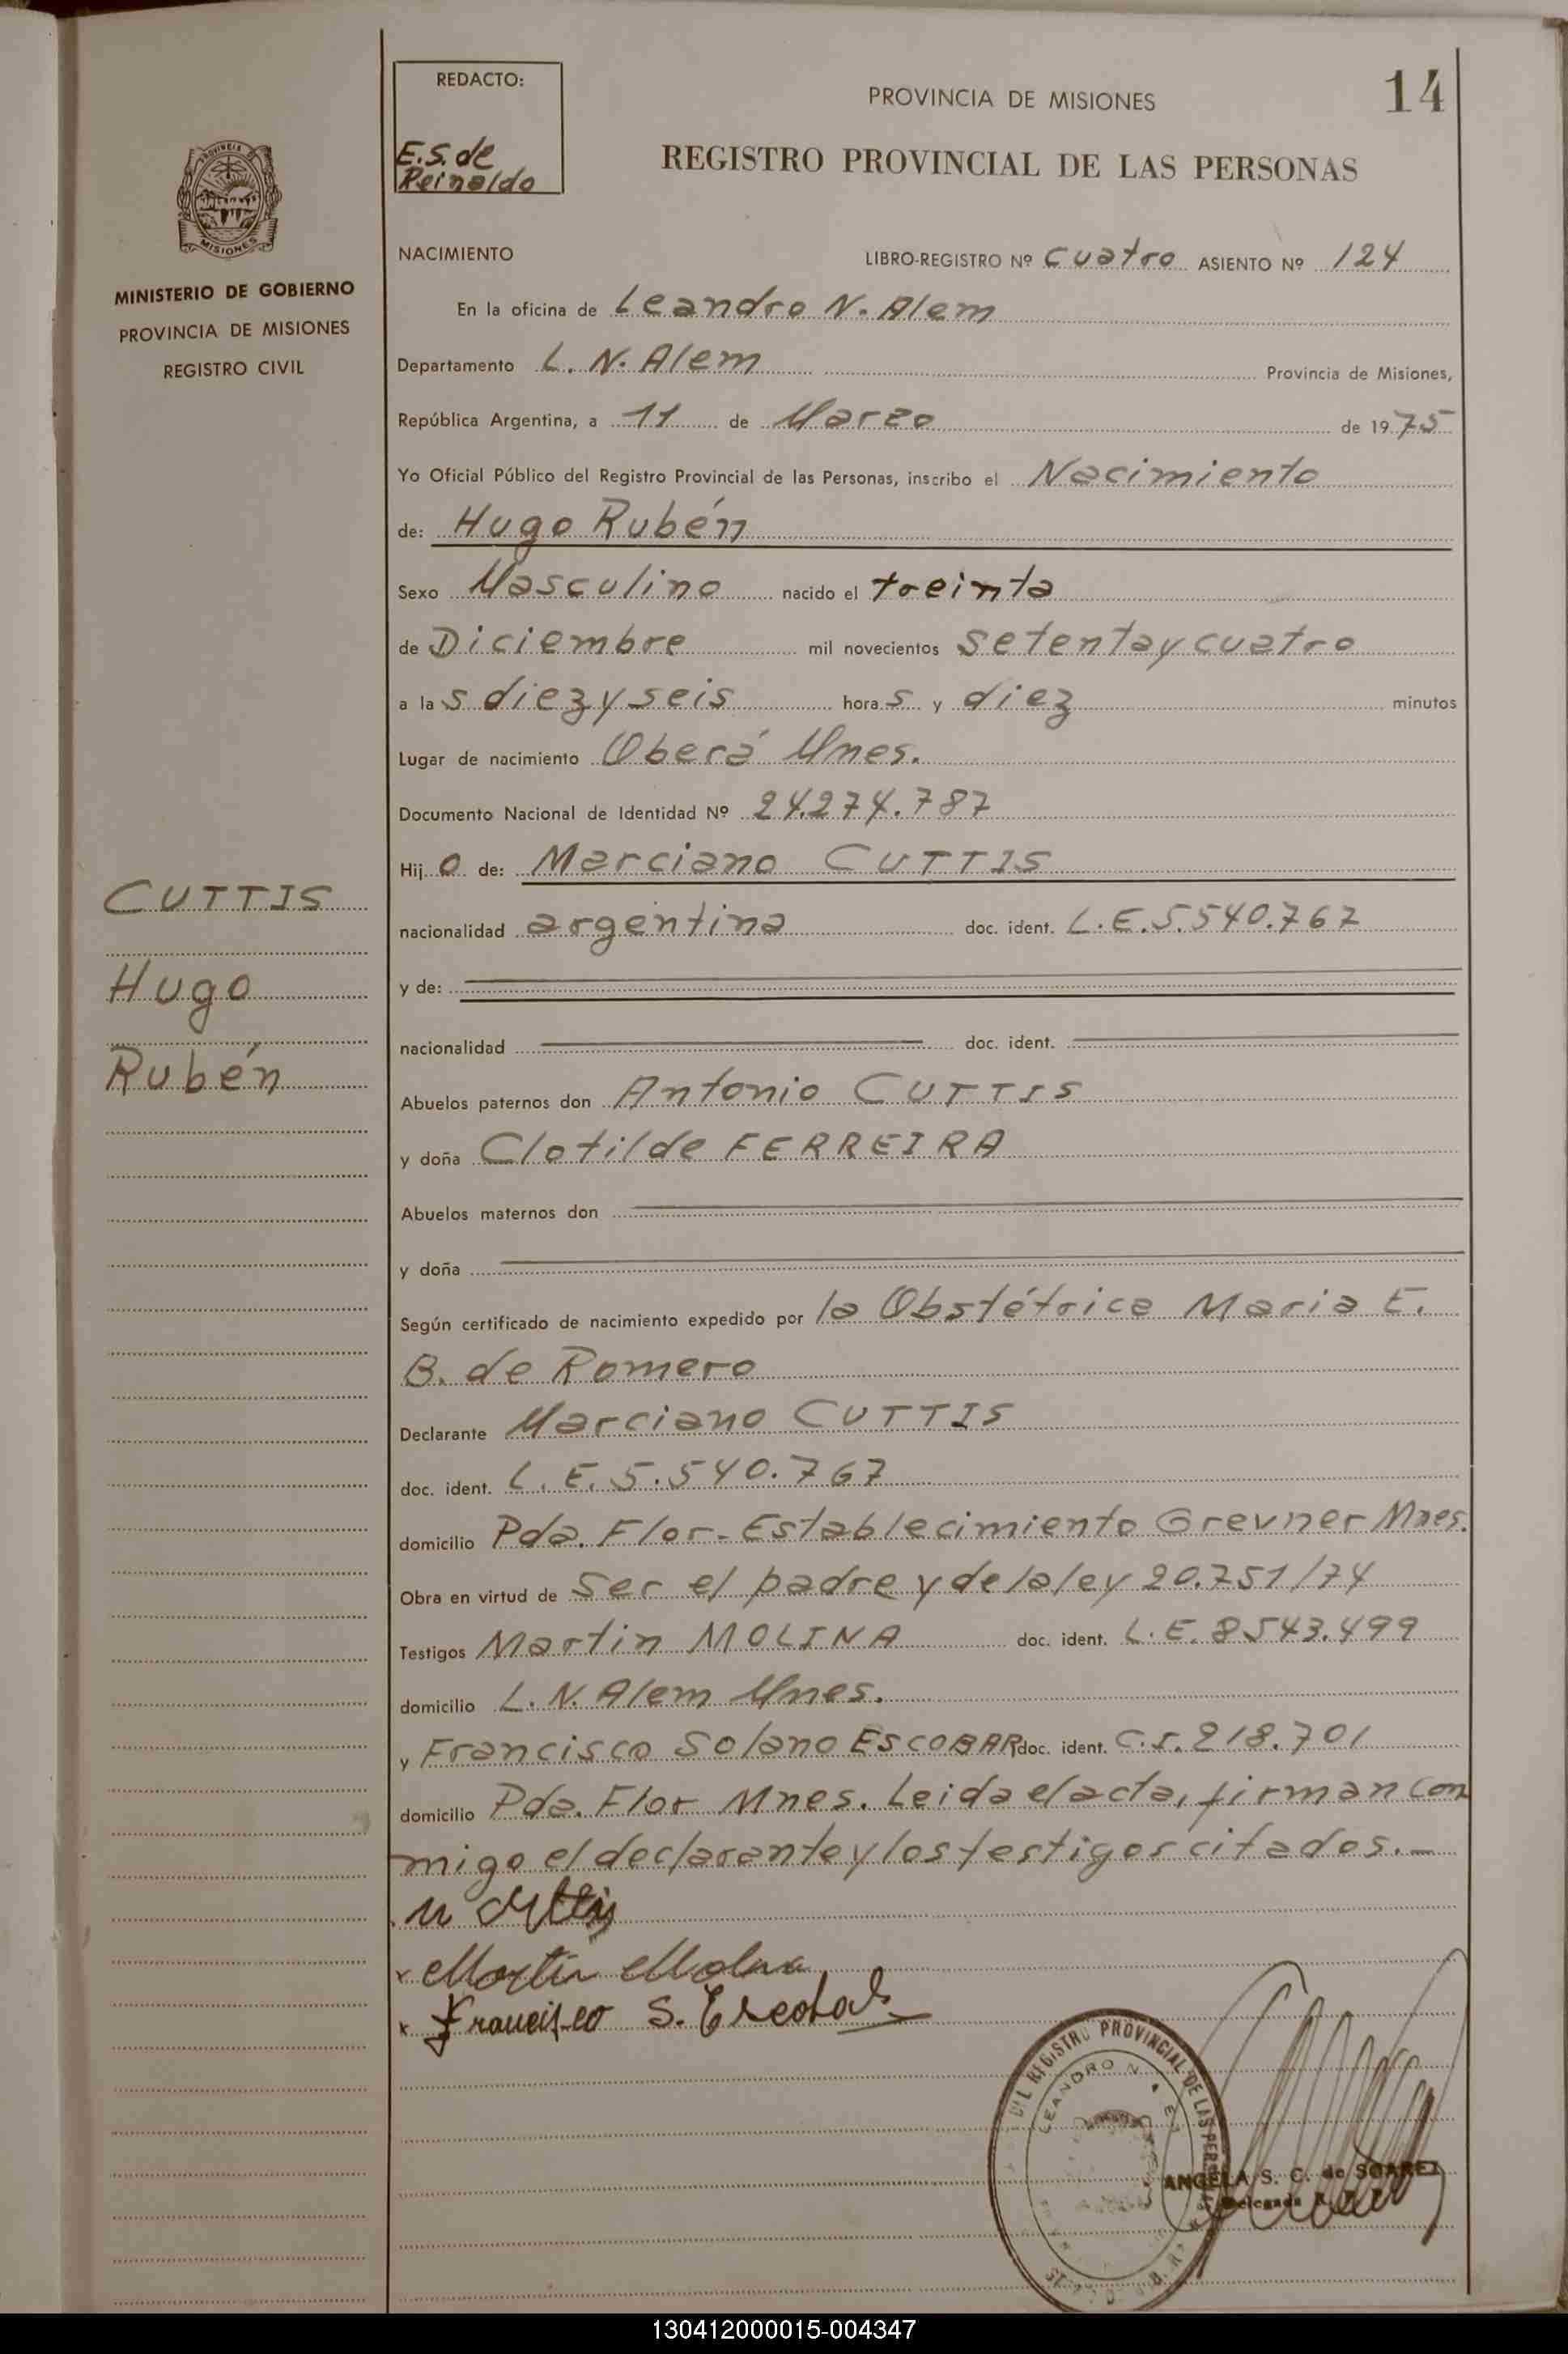 14
REDACTO:
E.S. de
Reinaldo
PROVINCIA DE MISIONES
REGISTRO PROVINCIAL DE LAS PERSONAS
PROVINCIA DE
MISIONES
MINISTERIO DE GOBIERNO
PROVINCIA DE MISIONES
REGISTRO CIVIL
CUTTIS
Hugo
Rubén
NACIMIENTO LIBRO-REGISTRO Nº cuatro ASIENTO Nº 124
En la oficina de Leandro N. Alem
Departamento L. N. Alem Provincia de Misiones,
República Argentina, a 11 de Marzo de 1975
Yo Oficial Público del Registro Provincial de las Personas, inscribo el Nacimiento
de: Hugo Rubén
Sexo Masculino nacido el treinta
de Diciembre mil novecientos setenta y cuatro
a las diez y seis horas y diez minutos
Lugar de nacimiento Oberá Mnes.
Documento Nacional de Identidad Nº 24.274.787
Hijo de: Marciano CUTTIS
nacionalidad argentina doc. ident. L.E.5.540.767
y de:
nacionalidad doc. ident.
Abuelos paternos don Antonio CUTTIS
y doña Clotilde FERREIRA
Abuelos maternos don
y doña
Según certificado de nacimiento expedido por la Obstétrica Maria E.
B. de Romero
Declarante Marciano CUTTIS
doc. ident. L.E.5.540.767
domicilio Pda. Flor-Establecimiento Grevner Mnes.
Obra en virtud de ser el padre y de la ley 20.751/74
Testigos Martin MOLINA doc. ident. L.E.8543.499
domicilio L.N. Alem Mnes.
y Francisco Solano ESCOBAR doc. ident. C.I.218.701
domicilio Pda. Flor Mnes. Leida el acta, firman con
migo el declarante y los testigos citados.-
M Cuttis
x Martin Molina
x Francisco S. Escobar
REGISTRO PROVINCIAL DE LAS PER
LEANDRO N.
ANGELA S. C. de SOAREZ
Delegada
130412000015-004347